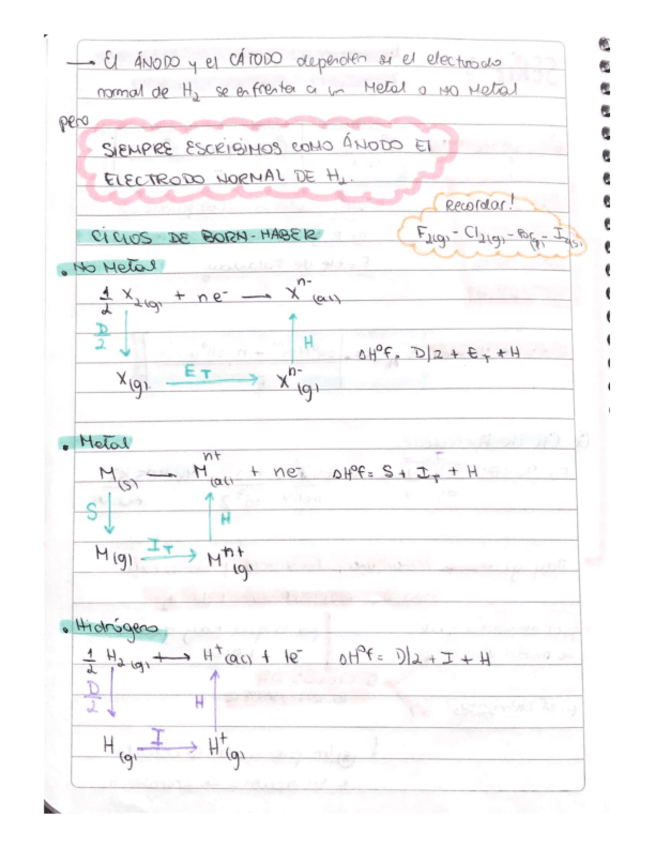 → El ÁNODO y el CÁTODO dependen si el electrodo
normal de H₂ se enfrenta a un Metal o NO Metal
pero
SIEMPRE ESCRIBIMOS COMO ÁNODO El
ELECTRODO NORMAL DE H₂.
Recordar!
F₂(g) - Cl₂(g) - Br₂(g) - I₂(s)
CICLOS DE BORN-HABER
• No Metal
1/2 X₂(g) + ne⁻ → Xⁿ⁻(ac)
D/2
H
ΔH°f = D/2 + E_T + H
X(g) E_T → Xⁿ⁻(g)
• Metal
M(s) → Mⁿ⁺(ac) + ne⁻ ΔH°f = S + I_T + H
S
H
M(g) I_T → Mⁿ⁺(g)
• Hidrógeno
1/2 H₂(g) → H⁺(ac) + 1e⁻ ΔH°f = D/2 + I + H
D/2
H
H(g) I → H⁺(g)